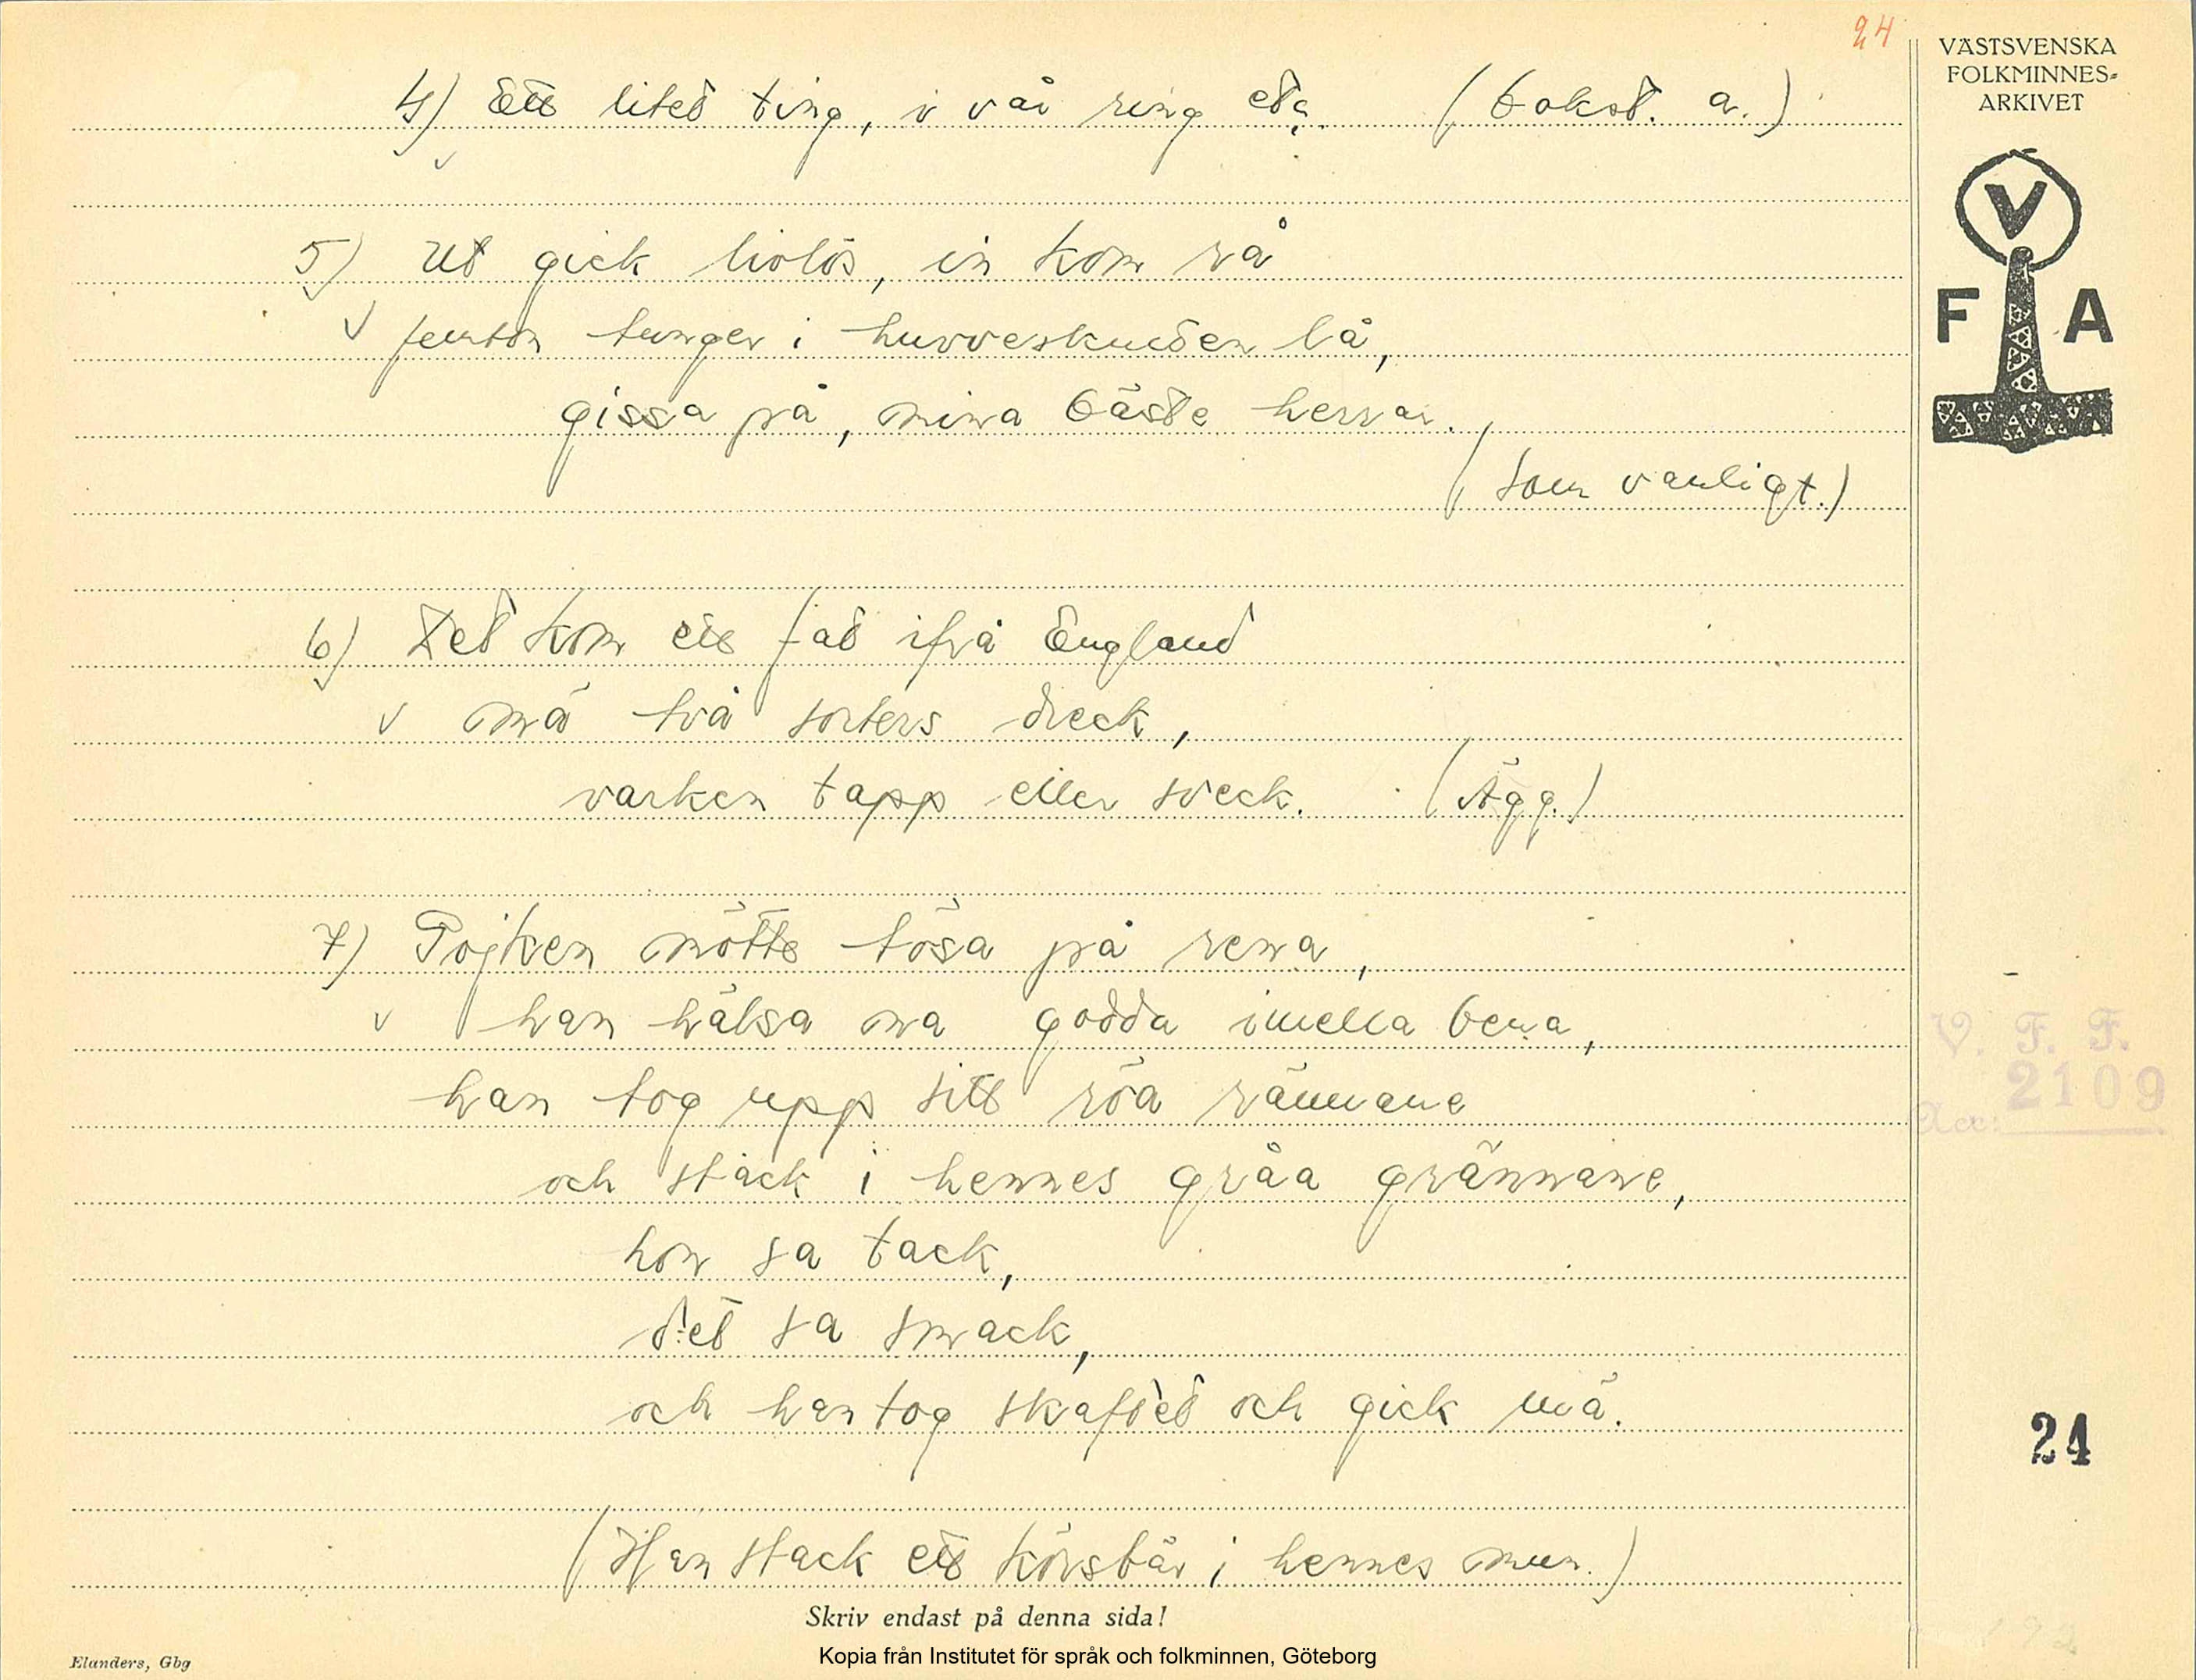 24
VÄSTSVENSKA
FOLKMINNES-
ARKIVET
V
F A
4) Ett litet ting, i vår ring etc. (bokst. a.)
5) Ut gick livlös, in kom rå
femton tunger i huvveskuden lå,
gissa på, mina bäste herrar.
(som vanligt.)
6) Det kom ett fat ifrå England
mä två sorters dreck,
varken tapp eller sveck. (Ägg.)
7) Pojken mötte tösa på rena,
han hälsa na godda imella bena,
han tog upp sitt röa rännane
och stack i hennes gråa grännane,
hon sa tack,
det sa smack,
och han tog skaftet och gick mä.
(Han stack ett körsbär i hennes mun.)
V. F. F.
Acc: 2109
24
Skriv endast på denna sida!
Kopia från Institutet för språk och folkminnen, Göteborg
Elanders, Gbg